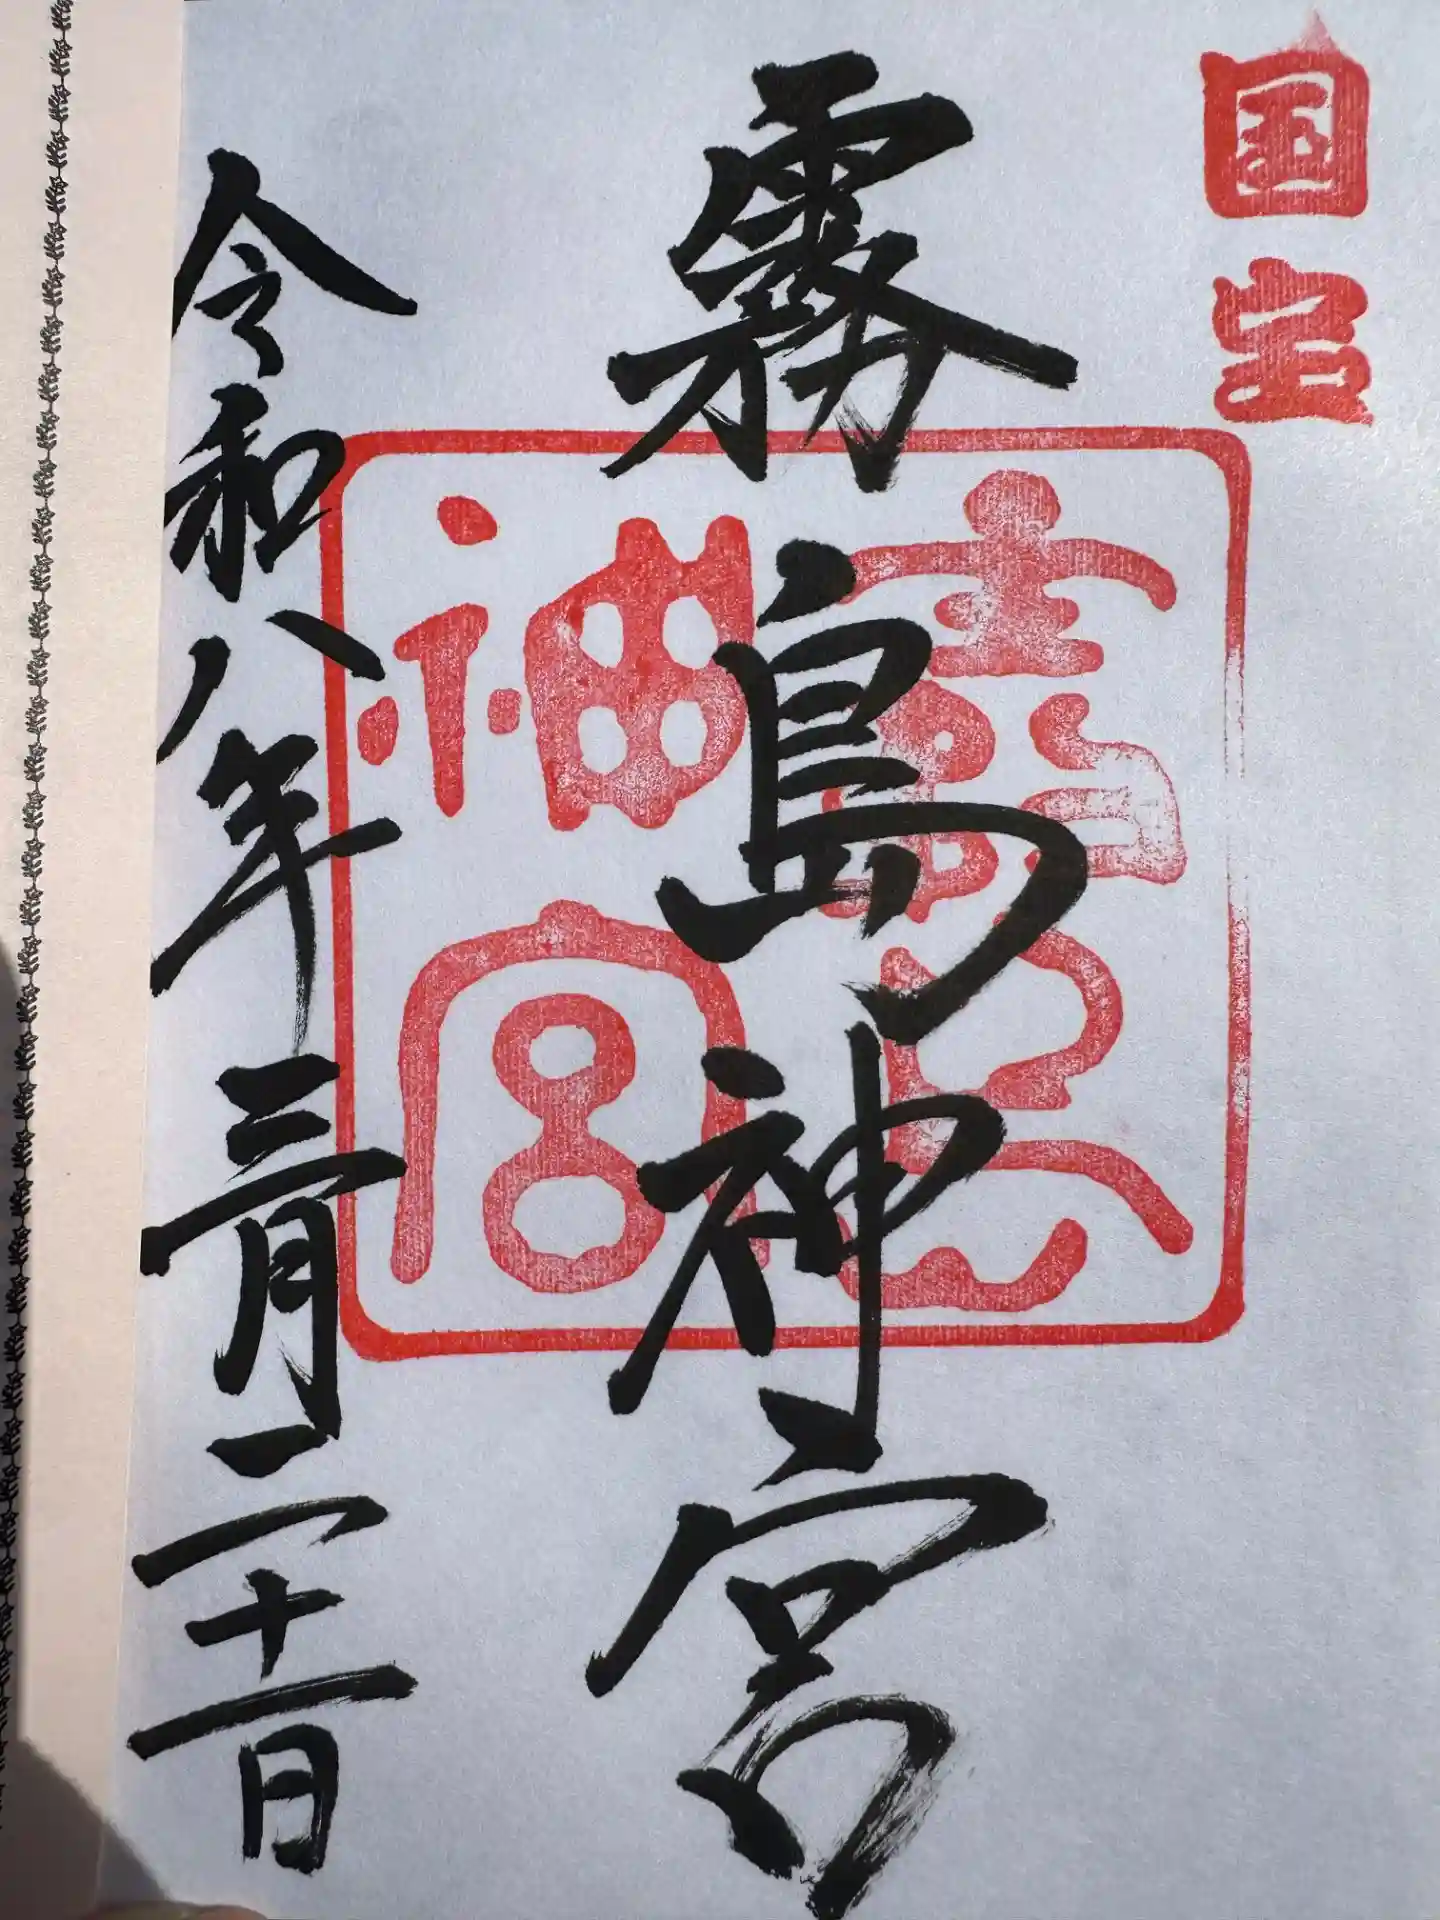 国宝
霧島神宮
霧島
神宮
令和八年三月二十一日